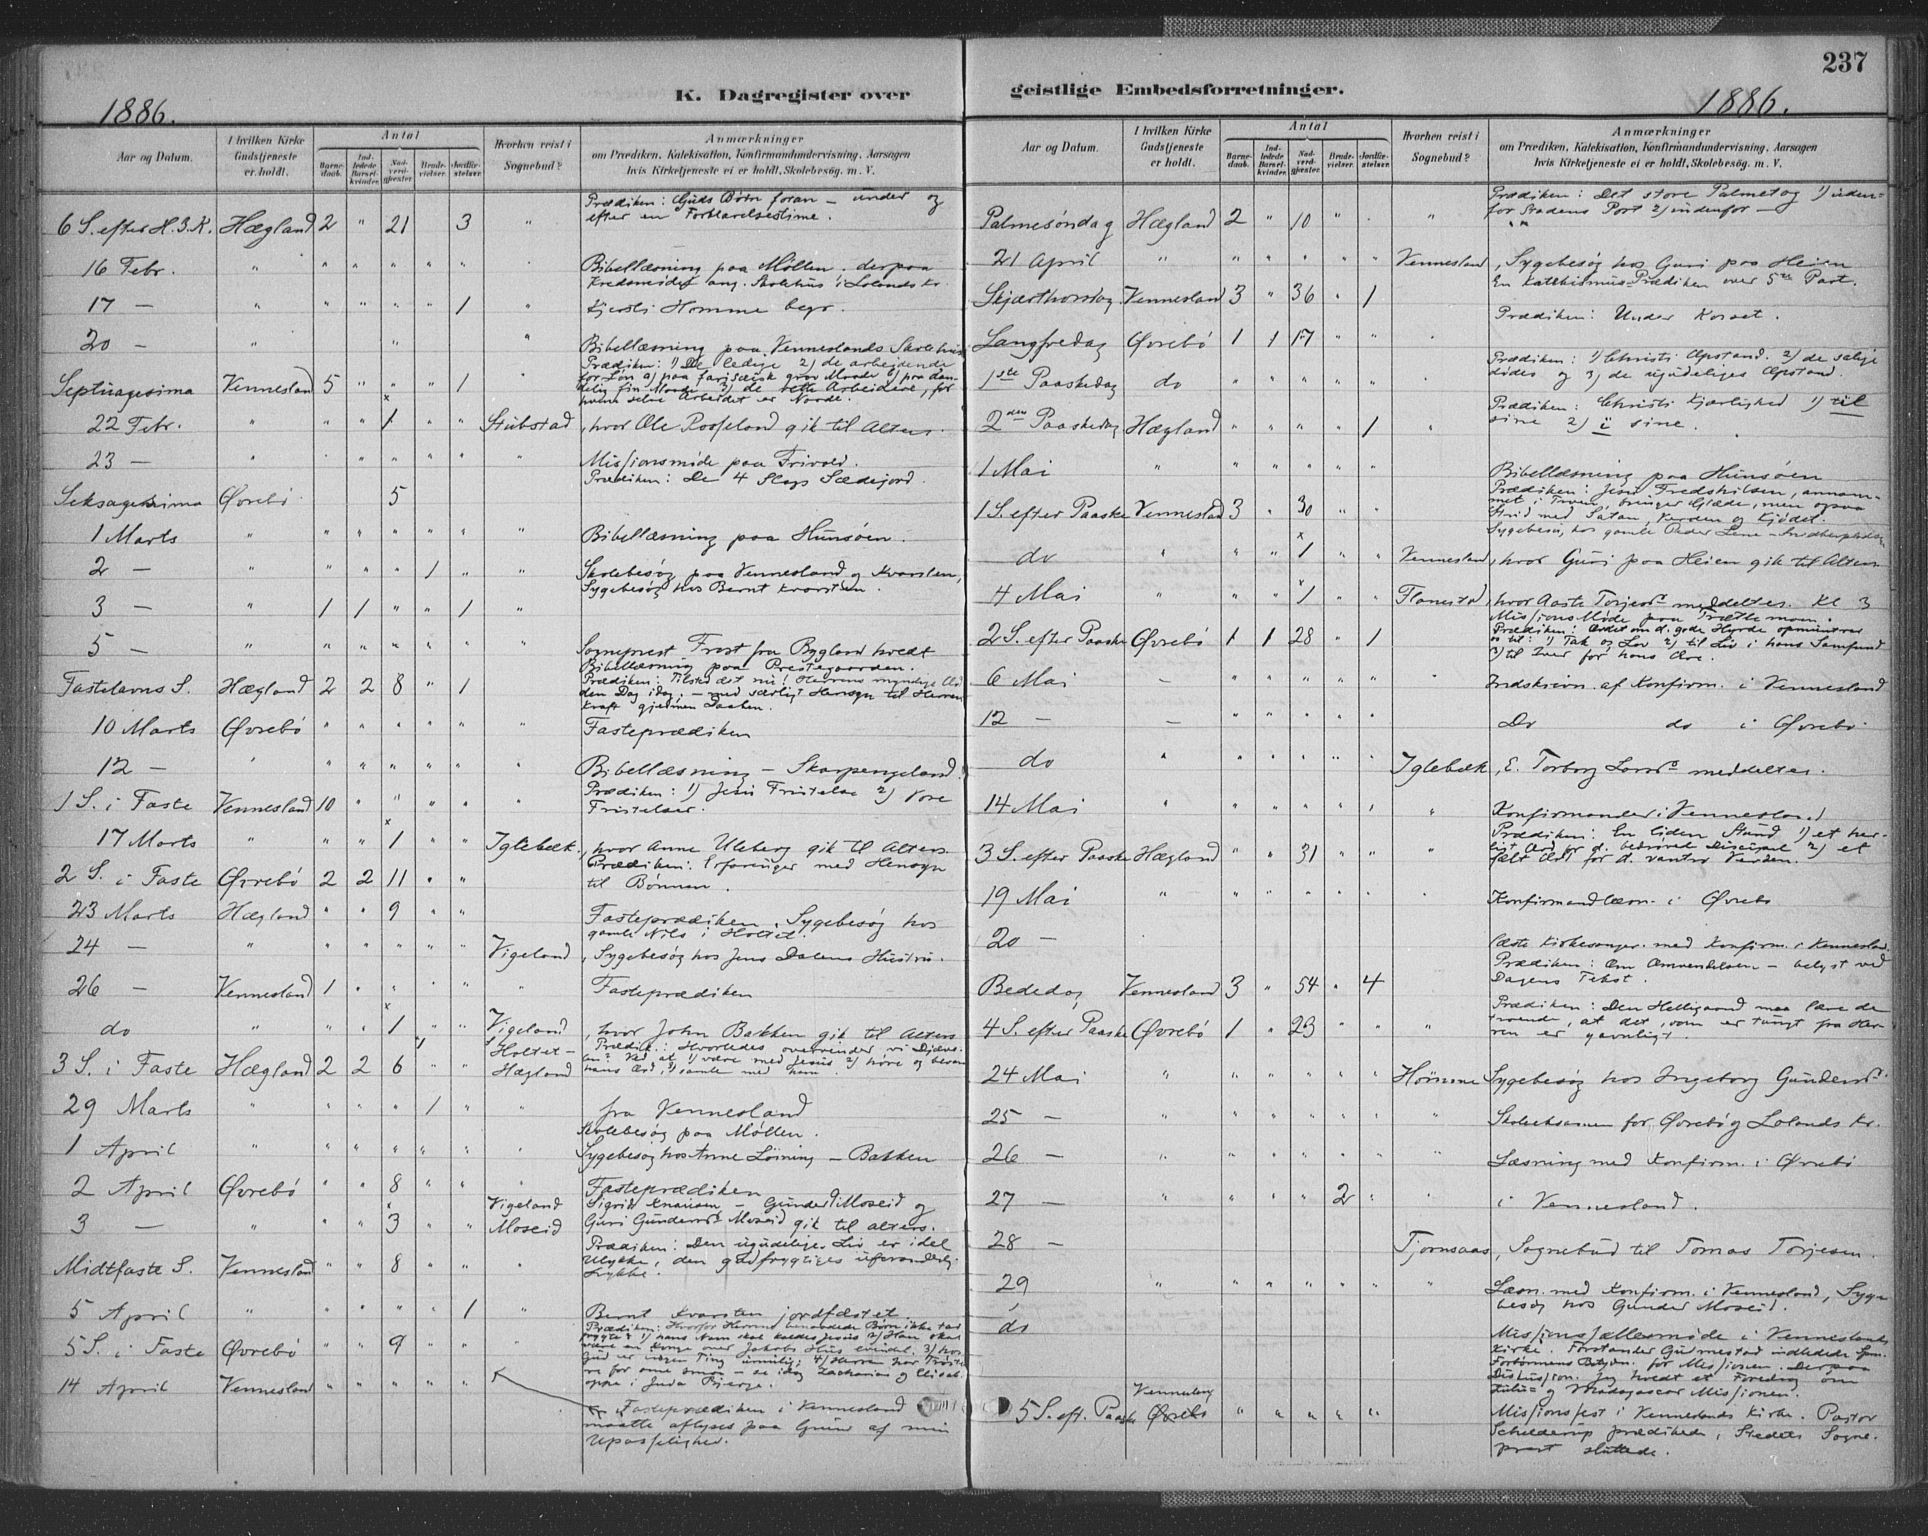 237
K. Dagregister over geistlige Embedsforretninger.
1886. 1886.
Aar og Datum. I hvilken Kirke Gudstjeneste er holdt. Antal Barnedaab. Indledede Barselkvinder. Nadverdgjæster. Brudevielser. Jordfæstelser. Hvorhen reist i Sognebud? Anmærkninger om Prædiken, Katekisation, Konfirmandundervisning, Aarsagen hvis Kirketjeneste ei er holdt, Skolebesög. m. V.
Prædiken: Guds Børn foran — under og
6 S. efter H. 3. K. Hægland 2 " 21 3 " efter en Forklarelsestime.
16 Febr. " " " " " " Bibellæsning paa Møllen, derpaa
Kredsmøde ang. Skolehus i Lolands Kr.
17 — " " " " " 1 " Kjersti Homme begr.
20 — " " Bibellæsning paa Venneslands Skolehus
Prædiken: 1) De ledige 2) de arbeidende
Septuagesima Vennesland 5 " " " 1 " for Løn a) paa farisæisk grov Maade b) paa
fin Maade 3) de rette Arbeidere, for
hvem selve Arbeidet er Naade.
22 Febr. " " " x 1 " " Stubstad, hvor Ole Rosseland gik til Alters.
23 — " " " " " " " Missionsmøde paa Frivold.
Prædiken: De 4 Slags Sædejord.
Seksagesima Øvrebø 5
1 Marts " " " " " " " Bibellæsning paa Hunsøen.
2 — " " " " 1 " " Skolebesøg paa Vennesland og Kvarsten,
Sygebesøg hos Bernt Kvarsten.
3 — " 1 1 " " 1 "
5 — " " " " " " " Sogneprest Frost fra Bygland holdt
Bibellæsning paa Prestegaarden.
Fastelavns S. Hægland 2 2 8 " 1 Prædiken: Tilsted det nu! Herrens
den Dag idag — med særligt Hensyn til Herrens
Kraft gjennem Daaben.
10 Marts Øvrebø " " " " " " Fasteprædiken
12 — " " " " " " " Bibellæsning — Skarpengeland.
1 S. i Faste Vennesland 10 " " " " " Prædiken: 1) Jesu Fristelse 2) Vore
Fristelser.
17 Marts " " " x 1 " " Iglebæk, hvor Anne Uleberg gik til Alters
2 S. i Faste Øvrebø 2 2 11 " " Prædiken: Erfaringer med Hensyn
til Bønnen.
23 Marts Hægland " " 9 " " Fasteprædiken. Sygebesøg hos
gamle Nils i Holtet.
24 — " " " " " " Vigeland, Sygebesøg hos Jens Dalens Hustru.
26 — Vennesland 1 " " " " " Fasteprædiken
do " " " x 1 " " Vigeland, hvor John Bakken gik til Alters
Holtet — Prædik.: Hvorledes overvinder vi Djæve-
3 S. i Faste Hægland 2 2 6 " " Hægland len? Ved at 1) være med Jesus 2) høre og bevare
hans Ord, 3) samle med ham.
29 Marts " " " " 1 " " fra Vennesland
Skolebesøg paa Møllen.
1 April " " " " " " " Sygebesøg hos Anne Løining — Bakken
2 April Øvrebø " " 8 " " " Fasteprædiken
3 — " " " x 3 " " Vigeland Moseid Sigrid Knudsen — Gunder Moseid og
Guri Gundersd. Moseid gik til alters.
Midtfaste S. Vennesland " " 8 " " " Prædiken: Den ugudeliges Liv er idel
Ulykke, den gudfrygtiges uforanderlig
Lykke.
5 April " " " " " 1 " Bernt Kvarsten jordfæstet
5 S. i Faste Øvrebø " " 9 " " " Prædiken: Hvorfor Herrens benaadede Børn ikke skal
frygte? 1) hans Navn skal kaldes Jesus 2) Han skal
være en Konge over Jakobs Hus evindel. 3) hos
Gud er ingen Ting umulig; 4) Herren har
for sine smaa — se idag Zacharias og Elisabeth
oppe i Juda Bjerge.
14 April Vennesland " " " " "
Fasteprædiken i Vennesland
maatte aflyses paa Grund af min
Upasselighed.
Aar og Datum. I hvilken Kirke Gudstjeneste er holdt. Antal Barnedaab. Indledede Barselkvinder. Nadverdgjæster. Brudevielser. Jordfæstelser. Hvorhen reist i Sognebud? Anmærkninger om Prædiken, Katekisation, Konfirmandundervisning, Aarsagen hvis Kirketjeneste ei er holdt, Skolebesög. m. V.
Prædiken: Det store Palmetog 1) uden-
Palmesøndag Hægland 2 " 10 " " " for Stadens Port 2) indenfor —
21 April " " " " " " Vennesland, Sygebesøg hos Guri paa Heien
Skjærthorsdag Vennesland 3 " 36 " 1 En Katekismus-Prædiken over 5te Part.
Langfredag Øvrebø 1 1 17 " " " Prædiken: Under Korset.
1ste Paaskedag do " " " " " Prædiken: 1) Christi Opstand. 2) de salige
dødes og 3) de ugudeliges Opstand.
2den Paaskedag Hægland " " " " 1 " Prædiken: Christi Kjærlighed 1) til
sine 2) i sine.
1 Mai " " " " " " Bibellæsning paa Hunsøen
1 S. efter Paaske Vennesland 3 " 30 " " Prædiken: Jesu Fredshilsen, annam-
met i Troen, bringer Glæde, men ogsaa
Strid med Satan, Verden og Kjødet.
Sygebesøg hos gamle Peder Lene —
do " " " x 1 " " Vennesland, hvor Guri paa Heien gik til Alters
4 Mai " " " x 1 " " Flanestad, hvor Aaste Torjesd. meddeltes. Kl 3
Missions Møde paa Drættemoen.
2 S. efter Paaske Øvrebø 1 1 28 " 1 Prædiken: Ordet om d. gode Hyrde opmuntrer
os til: 1) Tak og Lov 2) til Liv i hans Samfund
3) til Iver for hans Ære.
6 Mai — " " " " " " Indskrivn. af Konfirm. i Vennesland
12 — — " " " " " Do do i Øvrebø.
do " " " " " " Iglebæk, E. Torborg Larsd. meddeltes.
14 Mai " " " " " " " Konfirmander i Vennesland
3 S. efter Paaske Hægland " " 31 " " " Prædiken: En liden Stund 1) et her-
ligt Ord for d. bedrøvede Discipel 2) et
fælt Ord for d. vantro Verden.
19 Mai " " " " " " " Konfirmandlæsn. i Øvrebø
20 — læste Kirkesanger med Konfirm. i Vennesland.
Bededag Vennesland 3 " 54 " 4 Prædiken: Om Omvendelsen — belyst ved
Dagens Tekst.
4 S. efter Paaske Øvrebø 1 " 23 " " " Prædiken: Den Helligaand maa lære de
troende, at det, som er tungt fra Her-
ren er gavnligt.
24 Mai " " " " " " Homme Sygebesøg hos Ingeborg Gundersd.
25 — " " " " " " " Skoleeksamen for Øvrebø og Lolands Kr.
26 — " " " " " " Læsning med Konfirm. i Øvrebø
27 — " " " " 2 " " i Vennesland.
28 — Tjomsaas, Sognebud til Tomas Torjesen.
29 " " " " " " " Læsn. med Konfirm. i Vennesland, Syge-
besøg hos Gunder Moseid.
do Missionsfællesmøde i Venneslands
Kirke. Forstander Gudmestad indledede Spm.
Fortømens Betydn. for Missionen. Derpaa
Diskussion. Jeg holdt et Foredrag om
Zulu- og Madagascar Missionen.
5 S. eft. Paaske Vennesland Øvrebø " " " " " Missionsfest i Venneslands Kirke. Pastor
Schelderup prædikede, Stedets Sogne-
prest sluttede.